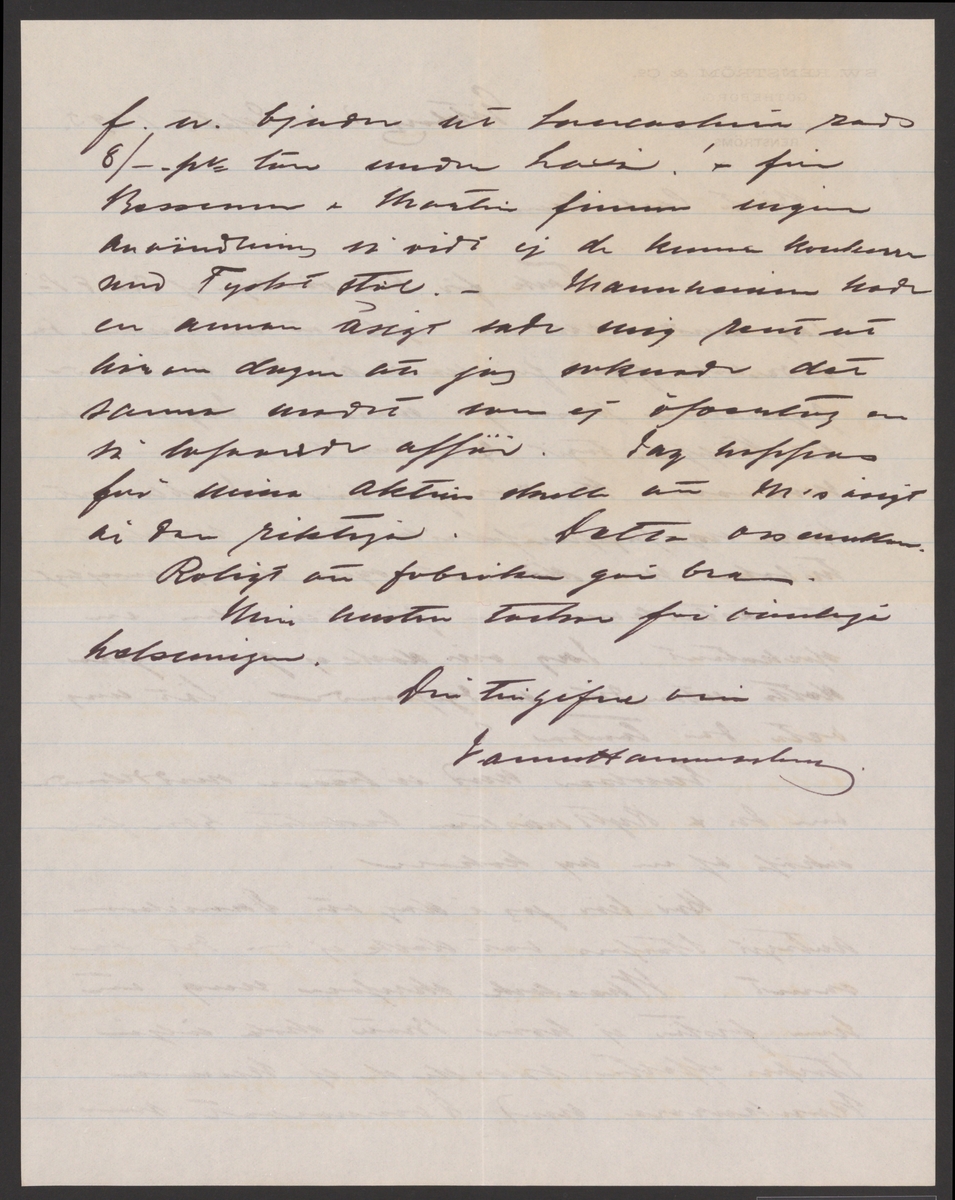 f. n. bjuder ut Lancashire rods
8/- pr ton under Laxå! & för
Bessemer & Martin finnes ingen
användning så vidt ej de kunna konkurrera
med Tyskt stål. – Mannheimer hade
en annan åsigt sade mig rent ut
häromdagen att jag saknade det
sanna modet som ej
affär. Jag hoppas
för mina aktiers skull att M's åsigt
är den riktiga. Detta oss emellan.
Roligt att fabriken går bra.
Min hustru tackar för vänliga
helsningen.
Din tillgifne vän